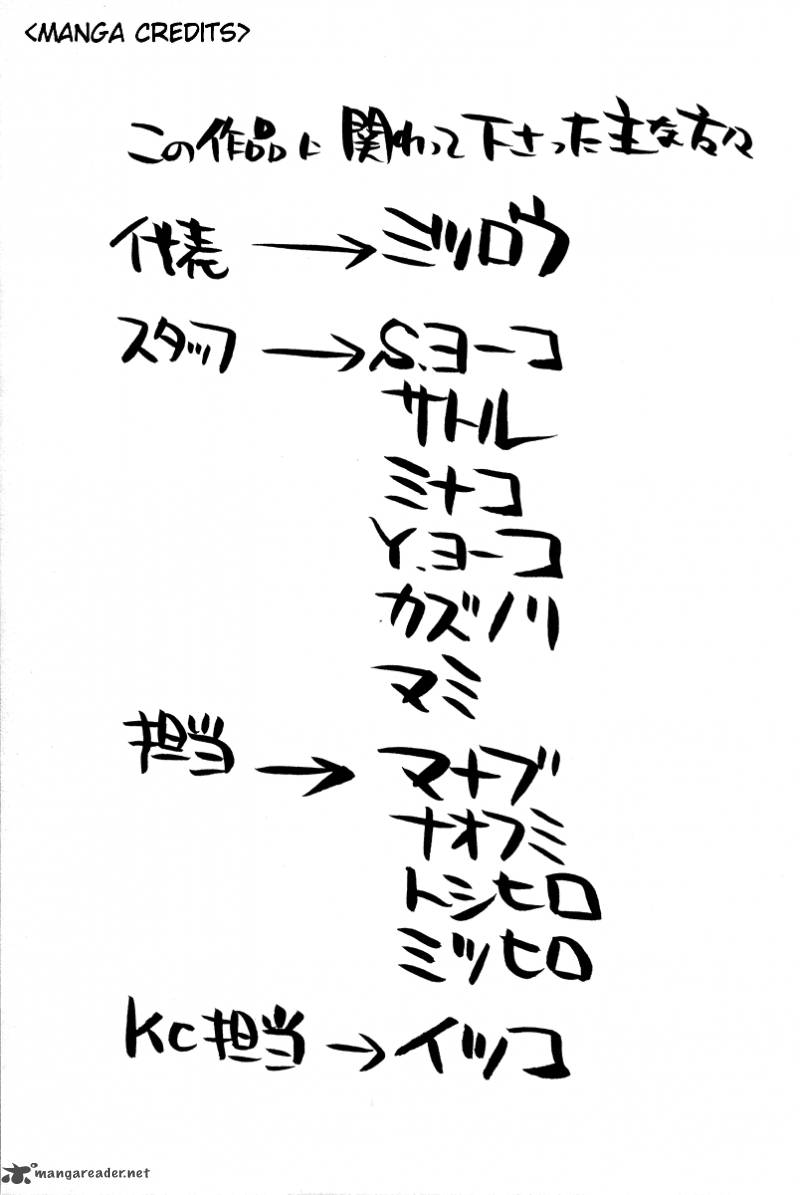 <MANGA CREDITS>
この作品に関わって下さった主な方々
代表 → ミツロウ
スタッフ → S.ヨーコ
サトル
ミナコ
Y.ヨーコ
カズノリ
マミ
担当 → マナブ
ナオフミ
トシヒロ
ミツヒロ
KC担当 → イツコ
mangareader.net